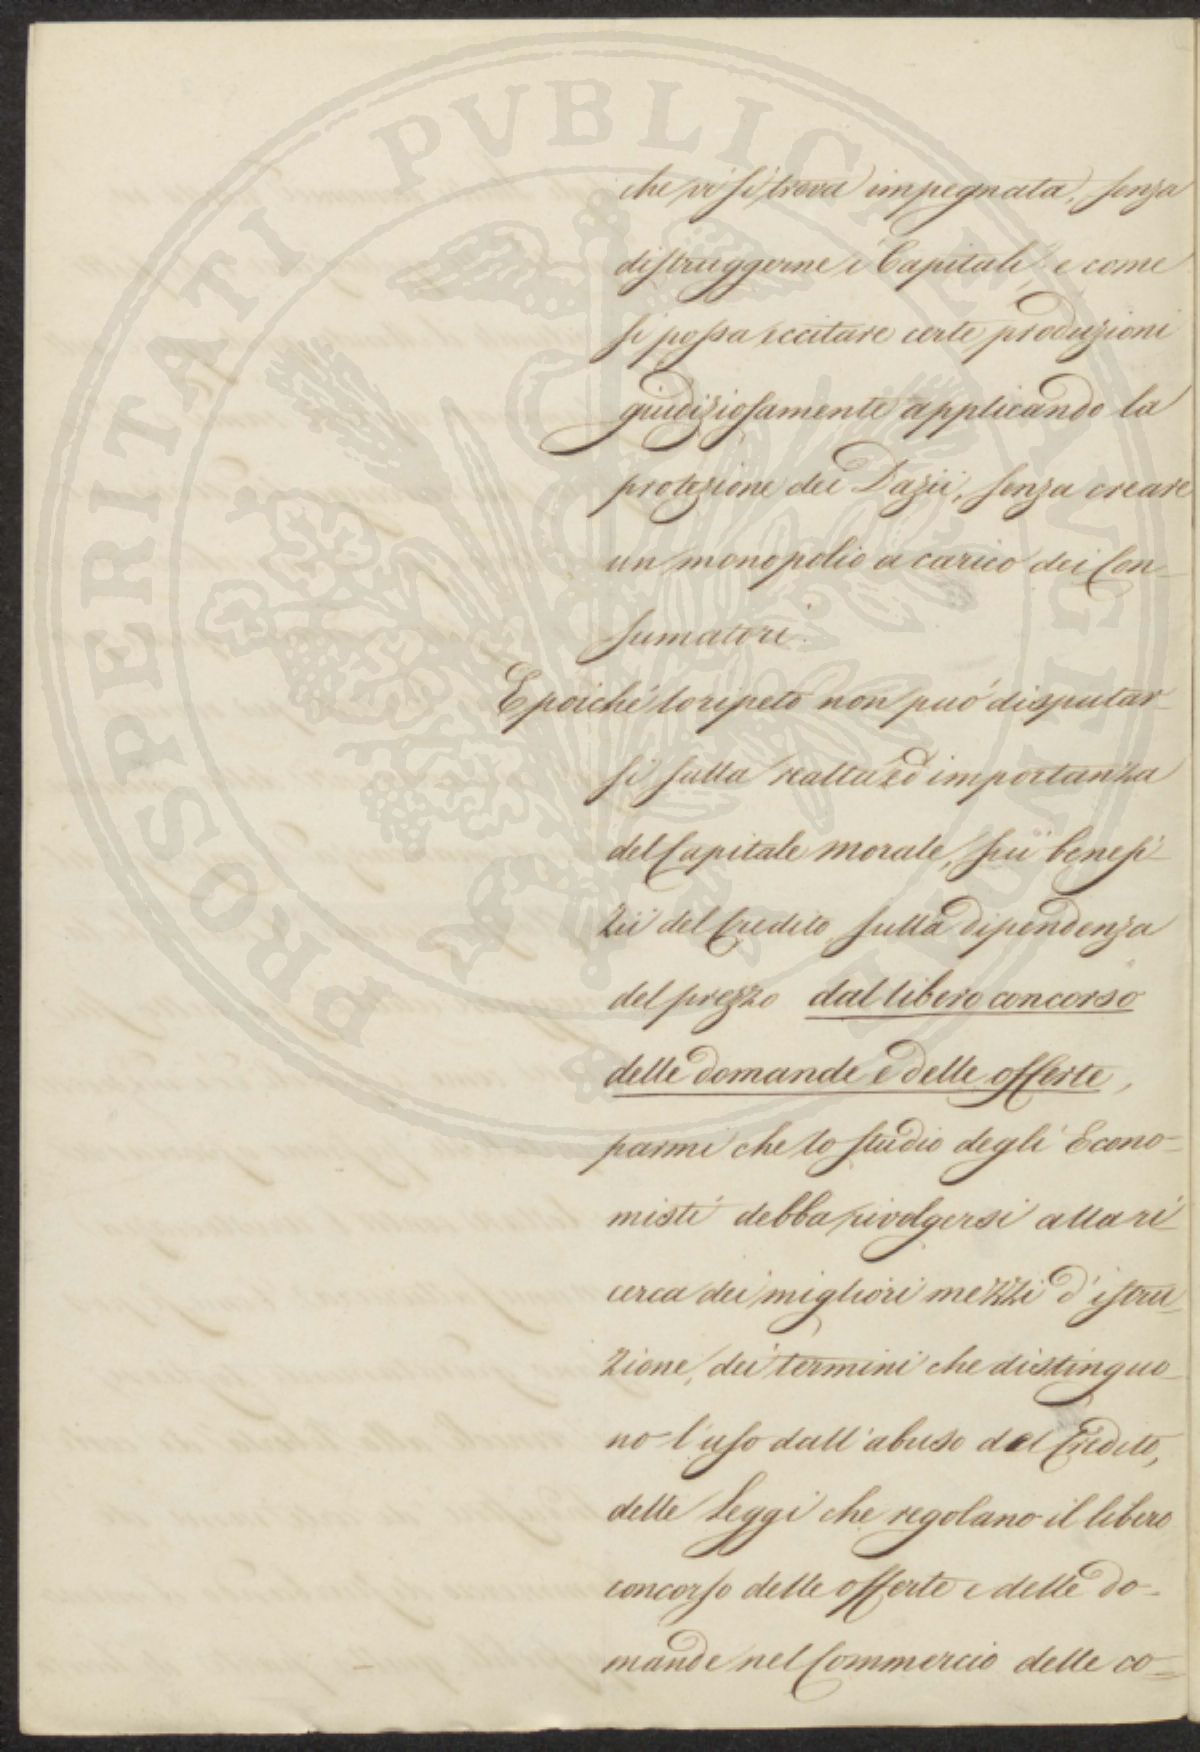 che vi si trova impegnata, senza
distruggerne i Capitali, e come
si possa eccitare certe produzioni
giudiziosamente applicando la
protezione dei Dazii, senza creare
un monopolio a carico dei Con-
sumatori.
E poiché lo ripeto non può disputar-
si sulla realtà ed importanza
del Capitale morale, sui benefi-
zii del Credito sulla dipendenza
del prezzo dal libero concorso
delle domande e delle offerte,
parmi che lo studio degli Econo-
misti debba rivolgersi alla ri-
cerca dei migliori mezzi d'istru-
zione, dei termini che distinguo-
no l'uso dall'abuso del Credito,
delle Leggi che regolano il libero
concorso delle offerte e delle do-
mande nel Commercio delle co-
PROSPERITATI PVBLICAE AVGENDAE